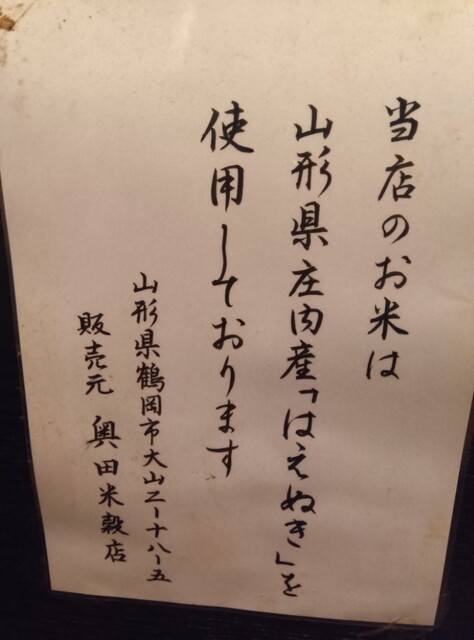 当店のお米は
山形県庄内産「はえぬき」を
使用しております
山形県鶴岡市大山二ー十八ー五
販売元 奥田米穀店